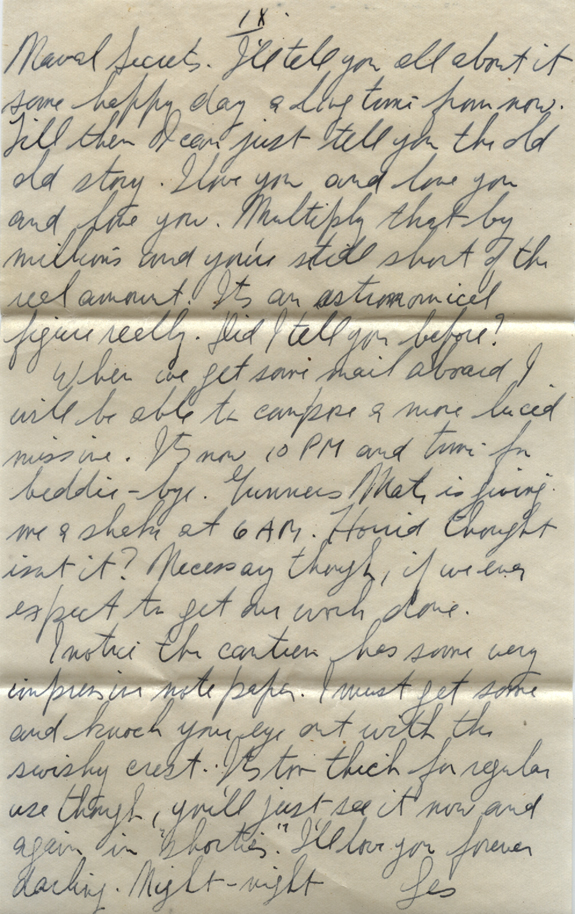 IX.
Naval Secrets. I'll tell you all about it
some happy day a long time from now.
Till then I can just tell you the old
old story. I love you and love you
and love you. Multiply that by
millions and you're still short of the
real amount. Its an astronomical
figure really. Did I tell you before?
When we get some mail aboard I
will be able to compose a more lucid
missive. It's now 10 PM and time for
beddie-bye. Gunners Mate is giving
me a shake at 6 AM. Horrid thought
isnt it? Necessary though, if we ever
expect to get our work done.
I notice the canteen has some very
impressive note paper. I must get some
and knock your eye out with the
swishy crest. Its too thick for regular
use though, you'll just see it now and
again in "shorties". I'll love you forever
darling. Night-night Les